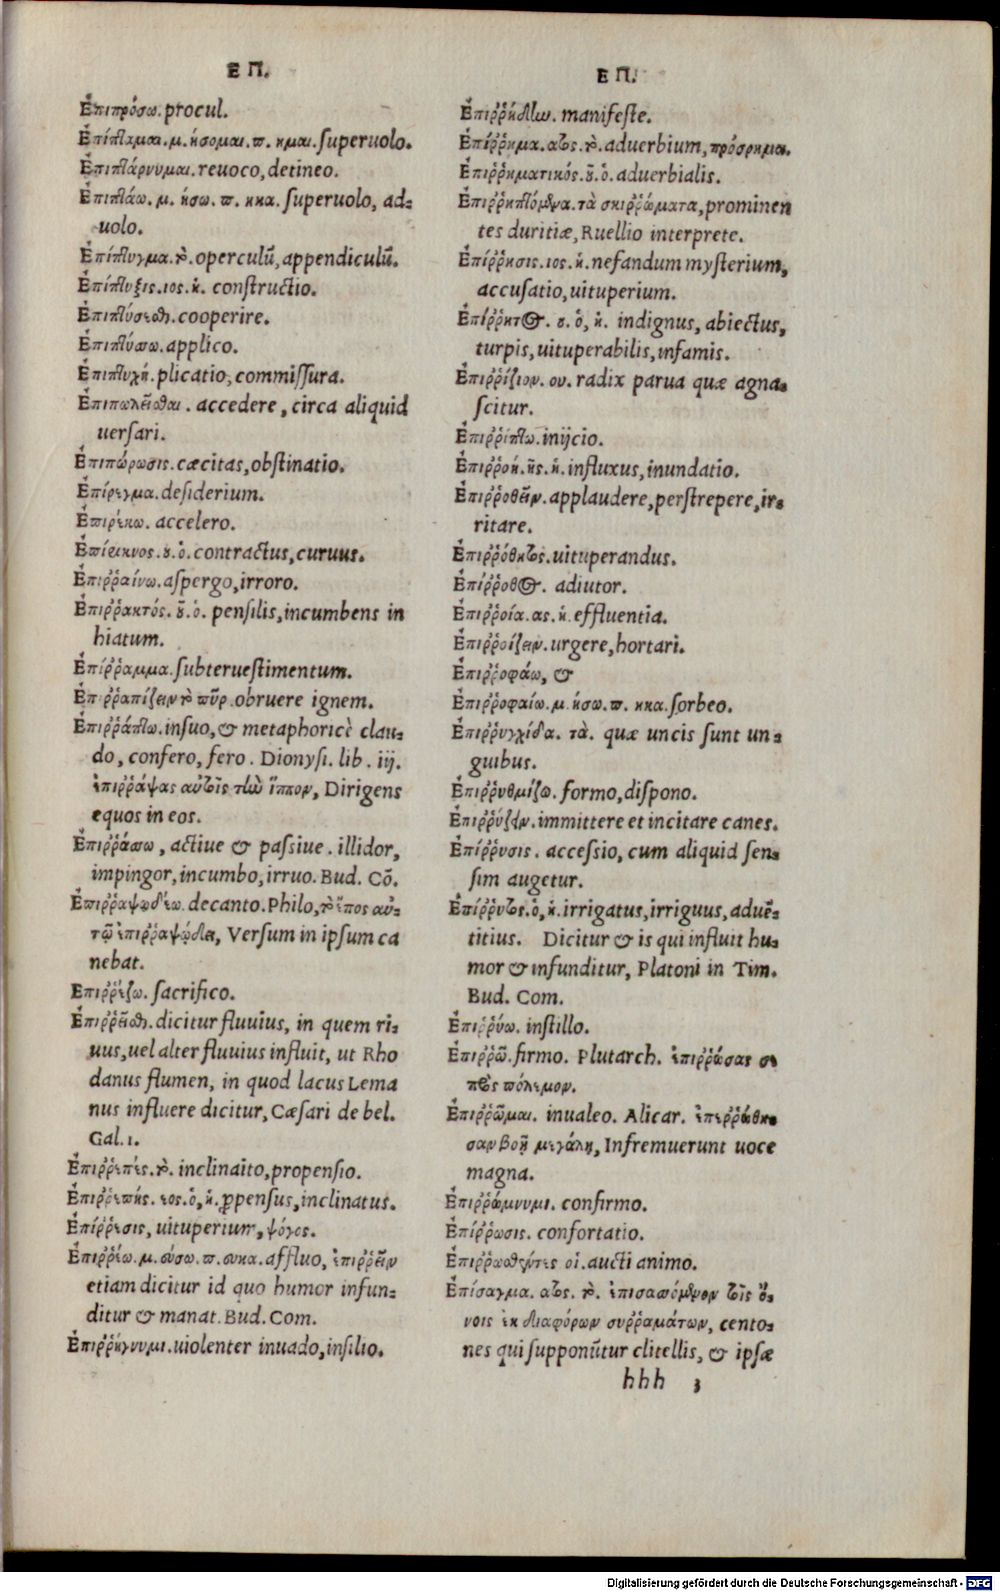 ΕΠ.
Ἐπιπρόσω. procul.
Ἐπίπταμαι. μ. ήσομαι. π. ημαι. superuolo.
Ἐπιπτάρνυμαι. reuoco, detineo.
Ἐπιπτάω. μ. ήσω. π. ηκα. superuolo, ad-
uolo.
Ἐπίπτυγμα. τὸ. operculũ, appendiculũ.
Ἐπίπτυξις. ιος. ἡ. constructio.
Ἐπιπτύσεσθαι. cooperire.
Ἐπιπτύσσω. applico.
Ἐπιπτυχή. plicatio, commissura.
Ἐπιπωλεῖσθαι. accedere, circa aliquid
uersari.
Ἐπιπώρωσις. cæcitas, obstinatio.
Ἐπίρεγμα. desiderium.
Ἐπιρέπω. accelero.
Ἐπίρικνος. ου. ὁ. contractus, curuus.
Ἐπιῤῥαίνω. aspergo, irroro.
Ἐπιῤῥακτός. οῦ. ὁ. pensilis, incumbens in
hiatum.
Ἐπίῤῥαμμα. subteruestimentum.
Ἐπιῤῥαπίζειν τὸ πῦρ. obruere ignem.
Ἐπιῤῥάπτω. insuo, & metaphoricè clau-
do, confero, fero. Dionysi. lib. iij.
ἐπιῤῥάψας αὐτοῖς τὴν ἵππον, Dirigens
equos in eos.
Ἐπιῤῥάσσω, actiue & passiue. illidor,
impingor, incumbo, irruo. Bud. Cõ.
Ἐπιῤῥαψῳδέω. decanto. Philo, τὸ ἔπος αὐ-
τῷ ἐπιῤῥαψῴδει, Versum in ipsum ca
nebat.
Ἐπιῤῥέζω. sacrifico.
Ἐπιῤῥεῖσθαι. dicitur fluuius, in quem ri-
uus, uel alter fluuius influit, ut Rho
danus flumen, in quod lacus Lema
nus influere dicitur, Cæsari de bel.
Gal. 1.
Ἐπιῤῥεπές. τὸ. inclinaito, propensio.
Ἐπιῤῥεπής. εος. ὁ, ἡ. ꝓpensus, inclinatus.
Ἐπίῤῥεσις, uituperium, ψόγος.
Ἐπιῤῥέω. μ. εύσω. π. ευκα. affluo, ἐπιῤῥεῖν
etiam dicitur id quo humor infun-
ditur & manat. Bud. Com.
Ἐπιῤῥήγνυμι. uiolenter inuado, insilio.
ΕΠ.
Ἐπιῤῥήδην. manifeste.
Ἐπίῤῥημα. ατος. τὸ. aduerbium, πρόσρημα.
Ἐπιῤῥηματικός. οῦ. ὁ. aduerbialis.
Ἐπιῤῥηπτόμενα. τὰ σκιῤῥώματα, prominen
tes duritiæ, Ruellio interprete.
Ἐπίῤῥησις. ιος. ἡ. nefandum mysterium,
accusatio, uituperium.
Ἐπίῤῥητος. ου. ὁ, ἡ. indignus, abiectus,
turpis, uituperabilis, infamis.
Ἐπιῤῥίζιον. ου. radix parua quæ agna-
scitur.
Ἐπιῤῥίπτω. inijcio.
Ἐπιῤῥοή. ῆς. ἡ. influxus, inundatio.
Ἐπιῤῥοθεῖν. applaudere, perstrepere, ir-
ritare.
Ἐπιῤῥόθητος. uituperandus.
Ἐπίῤῥοθος. adiutor.
Ἐπιῤῥοία. ας. ἡ. effluentia.
Ἐπιῤῥοίζειν. urgere, hortari.
Ἐπιῤῥοφάω, &
Ἐπιῤῥοφαίω. μ. ήσω. π. ηκα. sorbeo.
Ἐπιῤῥυγχίδα. τὰ. quæ uncis sunt un-
guibus.
Ἐπιῤῥυθμίζω. formo, dispono.
Ἐπιῤῥύζειν. immittere et incitare canes.
Ἐπίῤῥυσις. accessio, cum aliquid sen-
sim augetur.
Ἐπίῤῥυτος. ὁ, ἡ. irrigatus, irriguus, aduẽ-
titius. Dicitur & is qui influit hu-
mor & infunditur, Platoni in Tim.
Bud. Com.
Ἐπιῤῥύω. instillo.
Ἐπιῤῥῶ. firmo. Plutarch. ἐπιῤῥώσας
πρὸς πόλεμον.
Ἐπιῤῥῶμαι. inualeo. Alicar. ἐπεῤῥώθη-
σαν βοῇ μεγάλῃ, Infremuerunt uoce
magna.
Ἐπιῤῥώμνυμι. confirmo.
Ἐπίῤῥωσις. confortatio.
Ἐπιῤῥωσθέντες οἱ. aucti animo.
Ἐπίσαγμα. ατος. τὸ. ἐπισαπόμενον τοῖς ὄ-
νοις ἐκ διαφόρων συῤῥαμάτων, cento-
nes qui supponũtur clitellis, & ipsæ
hhh 3
Digitalisierung gefördert durch die Deutsche Forschungsgemeinschaft - DFG